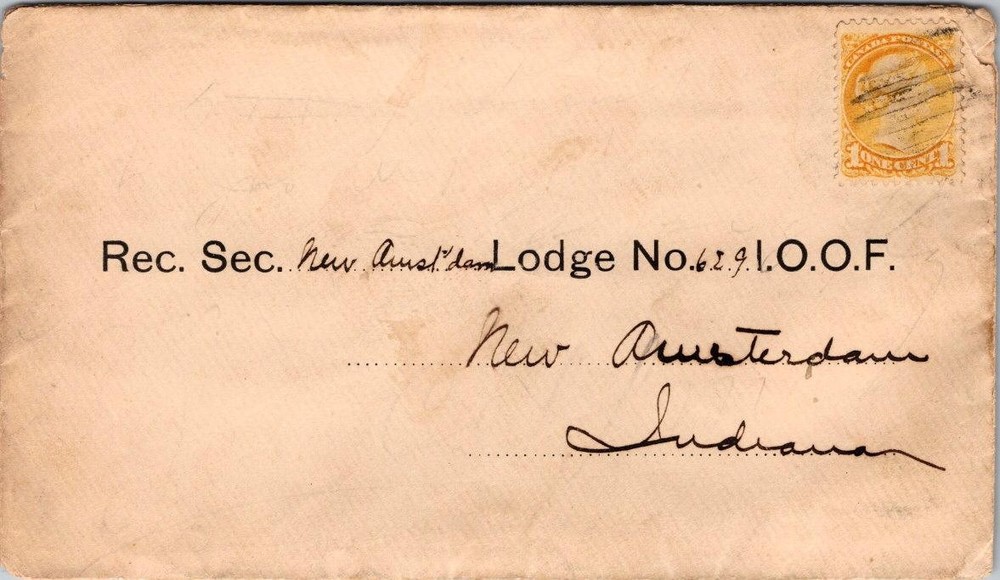 CANADA POSTAGE
1 ONE CENT 1
Rec. Sec. New Amst'dam Lodge No. 629 I.O.O.F.
New Amsterdam
Indiana